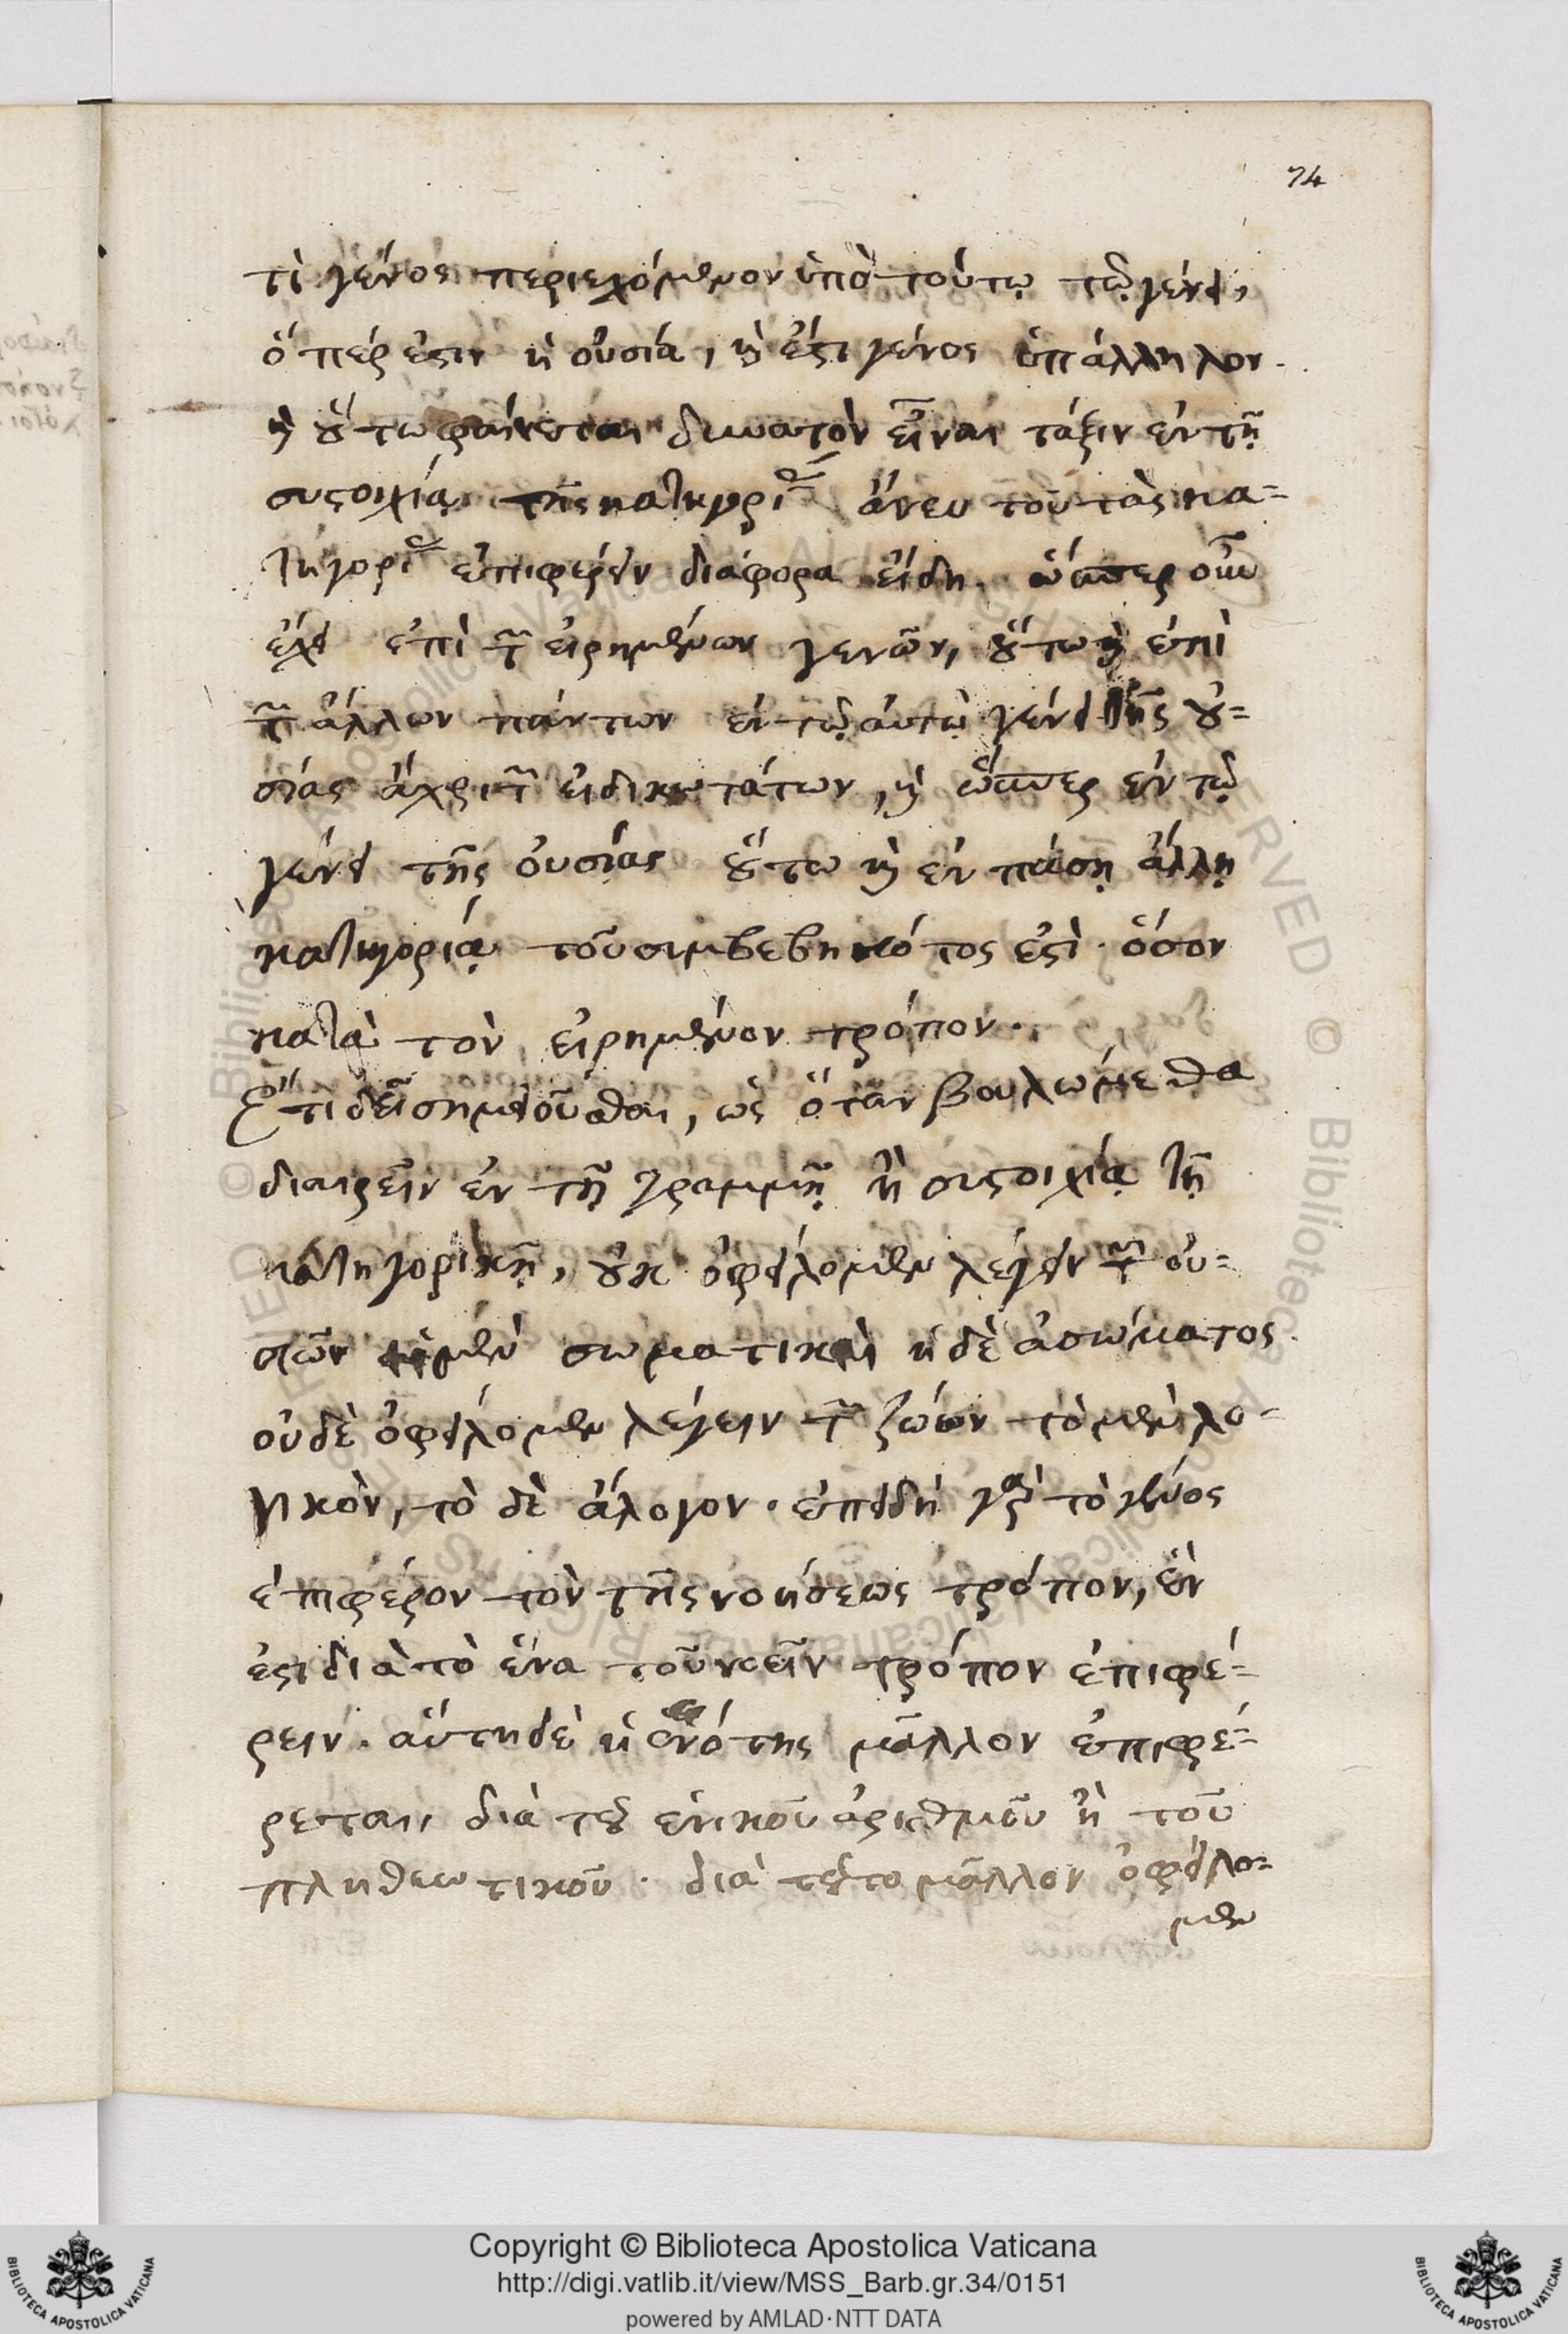 74
τὶ γένος περιεχόμενον ὑπὸ τούτῳ τῷ γένει,
ὅπέρ ἐστιν ἡ οὐσία, καὶ ἔστι γένος ὑπάλληλον.
καὶ οὕτω φαίνεται δυνατὸν εἶναι τάξιν ἐν τῇ
συστοιχίᾳ τῆς κατηγορίας ἄνευ τοῦ τὰς κα=
τηγορίας ἐπιφέρειν διάφορα εἴδη. ὥσπερ οὖν
ἔχει ἐπὶ τῶν εἰρημένων γενῶν, οὕτω καὶ ἐπὶ
τῶν ἄλλων πάντων ἐν τῷ αὐτῷ γένει τῆς οὐ=
σίας ἄχρι τῶν εἰδικωτάτων, καὶ ὥσπερ ἐν τῷ
γένει τῆς οὐσίας οὕτω καὶ ἐν πάσῃ ἄλλῃ
κατηγορίᾳ τοῦ συμβεβηκότος ἐστὶ. ὅσον
κατὰ τὸν εἰρημένον τρόπον.
Ἔτι δεῖ σημειοῦσθαι, ὡς ὅταν βουλώμεθα
διαιρεῖν ἐν τῇ γραμμῇ ἢ συστοιχίᾳ τῇ
κατηγορικῇ, οὐκ ὀφείλομεν λέγειν τῶν οὐ=
σιῶν μὲν σωματικαὶ ἡ δὲ ἀσώματος.
οὐδὲ ὀφείλομεν λέγειν τῶν ζώων τὸ μὲν λο=
γικὸν, τὸ δὲ ἄλογον. ἐπειδὴ γὰρ τὸ γένος
ἐπιφέρον τὸν τῆς νοήσεως τρόπον, ἓν
ἐστι διὰ τὸ ἕνα τοῦ νοεῖν τρόπον ἐπιφέ=
ρειν. αὕτη δὲ ἡ ἑνότης μᾶλλον ἐπιφέ=
ρεται, διὰ τοῦ ἑνικοῦ ἀριθμοῦ ἢ τοῦ
πληθυντικοῦ. διὰ τοῦτο μᾶλλον ὀφείλο=
μεν
Copyright © Biblioteca Apostolica Vaticana
http://digi.vatlib.it/view/MSS_Barb.gr.34/0151
powered by AMLAD·NTT DATA
BIBLIOTECA APOSTOLICA VATICANA
BIBLIOTECA APOSTOLICA VATICANA